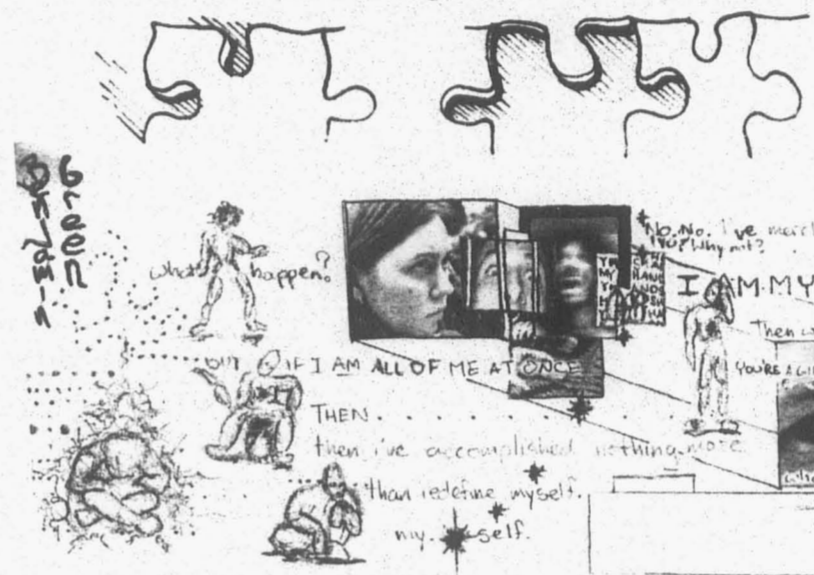 Benjamin
Green
what happen?
No. No. I've merel
You? Why not?
I AM MY
Then
YOU'RE A
OUT IF I AM ALL OF ME AT ONCE
THEN . . . . . . . . . . . .
then i've accomplished nothing more
than redefine myself.
my. self.